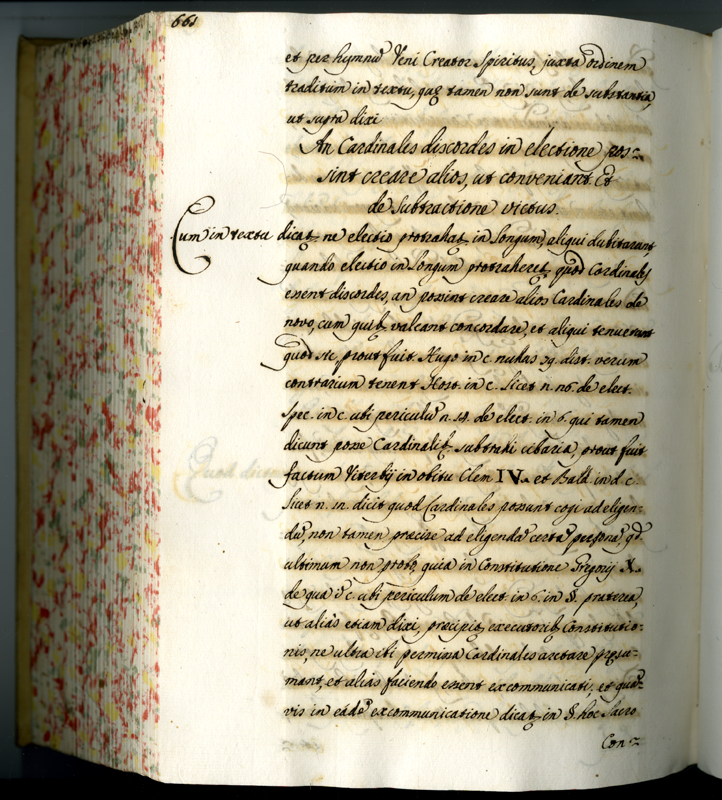 661
et per hymnũ Veni Creator Spiritus, juxta ordinem
traditum in textu, quę tamen non sunt de substantia,
ut supra dixi
An Cardinales discordes in electione pos=
sint creare alios, ut conveniant. Et
de subtractione victus.
Cum in textu dicat., ne electio protrahat. in longum, aliqui dubitarunt
quando electio in longum protraheret., quod Cardinales
essent discordes, an possint creare alios Cardinales de
novo, cum quib. valeant concordare, et aliqui tenuerunt
quod sic, prout fuit Hugo in c. nullus 79. dist. verum
contrarium tenent Host. in c. licet n. de elect.
Spec. in c. ubi periculũ n. de elect. in 6. qui tamen
dicunt posse Cardinalib. subtrahi cibaria, prout fuit
factum Viterbij in obitu Clem IV. et Bald. in d. c.
licet n. dicit quod Cardinales possunt cogi ad eligen=
dũ, non tamen precise ad eligendã certã personã, qd.
ultimum non prob., quia in Constitutione Gregorij X.
de qua ĩ c. ubi periculum de elect. in 6. in §. praterea,
ut aliàs etiam dixi, precipit. executorib. Constitutio=
nis, ne ultra ibi permissa Cardinales arctare pręsu=
mant, et aliàs faciendo essent excommunicati, et quam=
vis in eadẽ excommunicatione dicat. in §. hoc Sacro
Con=